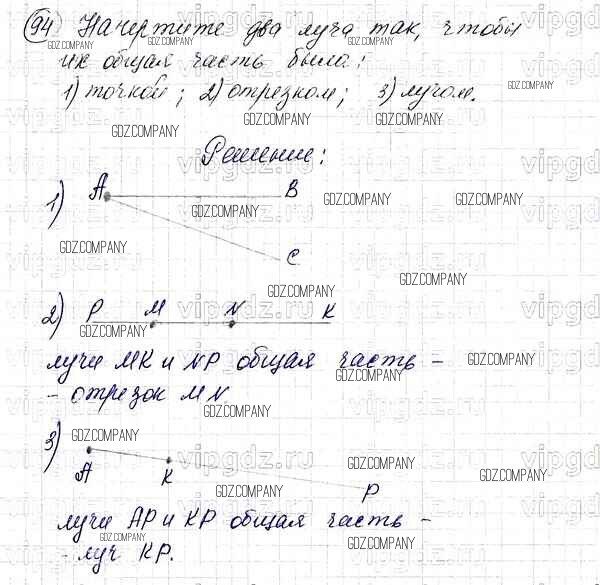 94 Начертите два луча так, чтобы
их общая часть была:
1) точкой; 2) отрезком; 3) лучом.
Решение:
1) A B
C
2) P M N K
лучи MK и NP общая часть -
- отрезок MN.
3)
A K P
лучи AP и KP общая часть -
- луч KP.
GDZ.COMPANY
vipgdz.ru